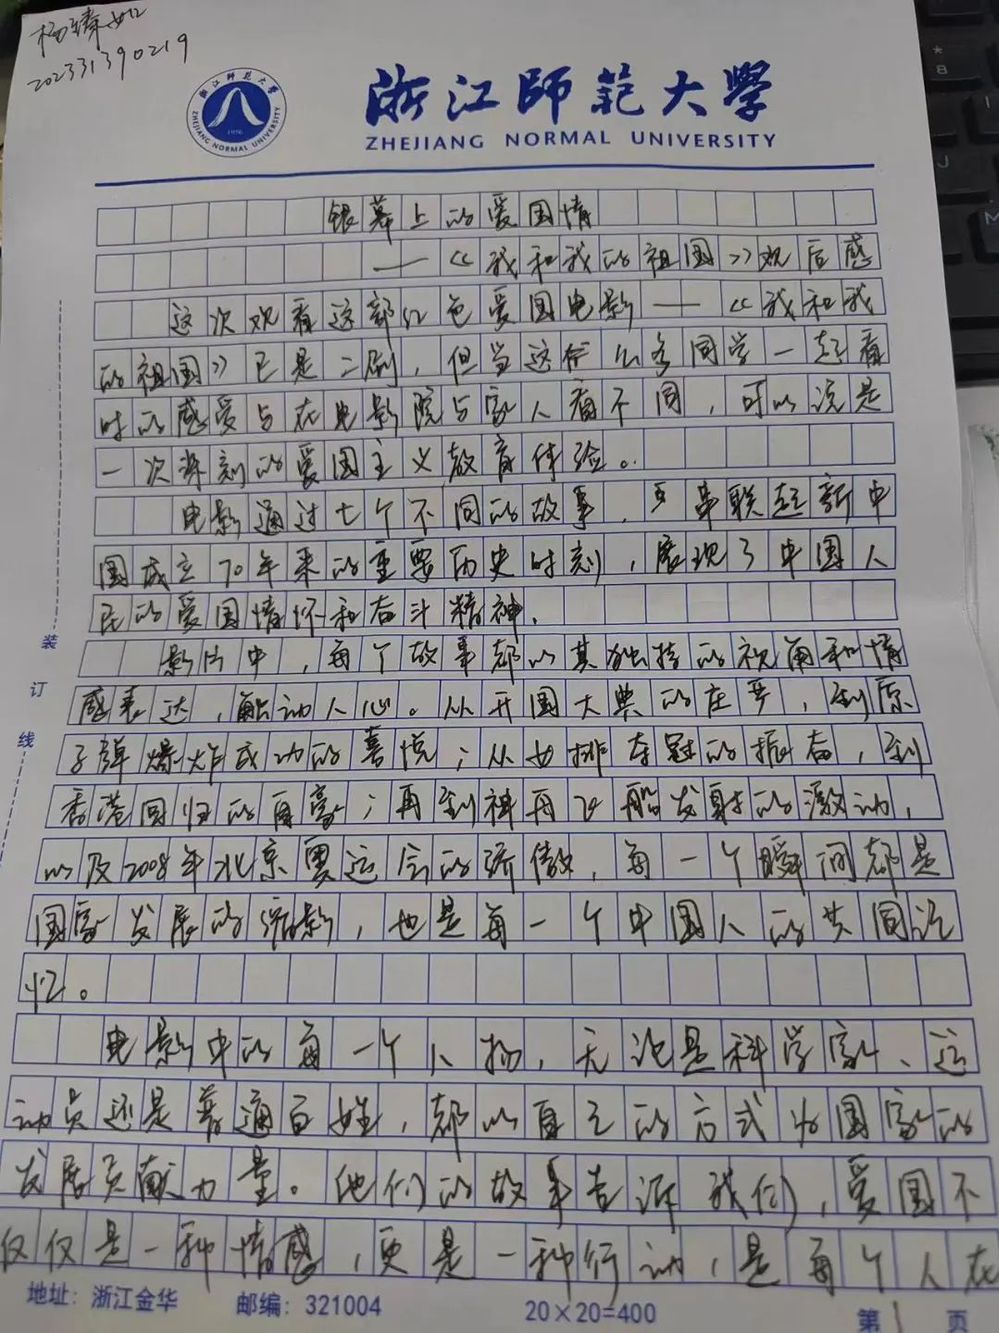 杨
202331390219
浙江師范大學
ZHEJIANG NORMAL UNIVERSITY
浙江师范大学
ZHEJIANG NORMAL UNIVERSITY
1956
银幕上的爱国情
——《我和我的祖国》观后感
这次观看这部红色爱国电影——《我和我
的祖国》已是二刷，但当这么多同学一起看
时的感受与在电影院与家人看不同，可以说是
一次深刻的爱国主义教育体验。
电影通过七个不同的故事，串联起新中
国成立70年来的重要历史时刻，展现了中国人
民的爱国情怀和奋斗精神。
影片中，每个故事都以其独特的视角和情
感表达，触动人心。从开国大典的庄严，到原
子弹爆炸成功的喜悦；从女排夺冠的振奋，到
香港回归的自豪；再到神舟飞船发射的激动，
以及2008年北京奥运会的骄傲，每一个瞬间都是
国家发展的缩影，也是每一个中国人的共同记
忆。
电影中的每一个人物，无论是科学家、运
动员还是普通百姓，都以自己的方式为国家的
发展贡献力量。他们的故事告诉我们，爱国不
仅仅是一种情感，更是一种行动，是每个人在
装
订
线
地址：浙江金华
邮编：321004
20×20=400
第1页
*
8
J